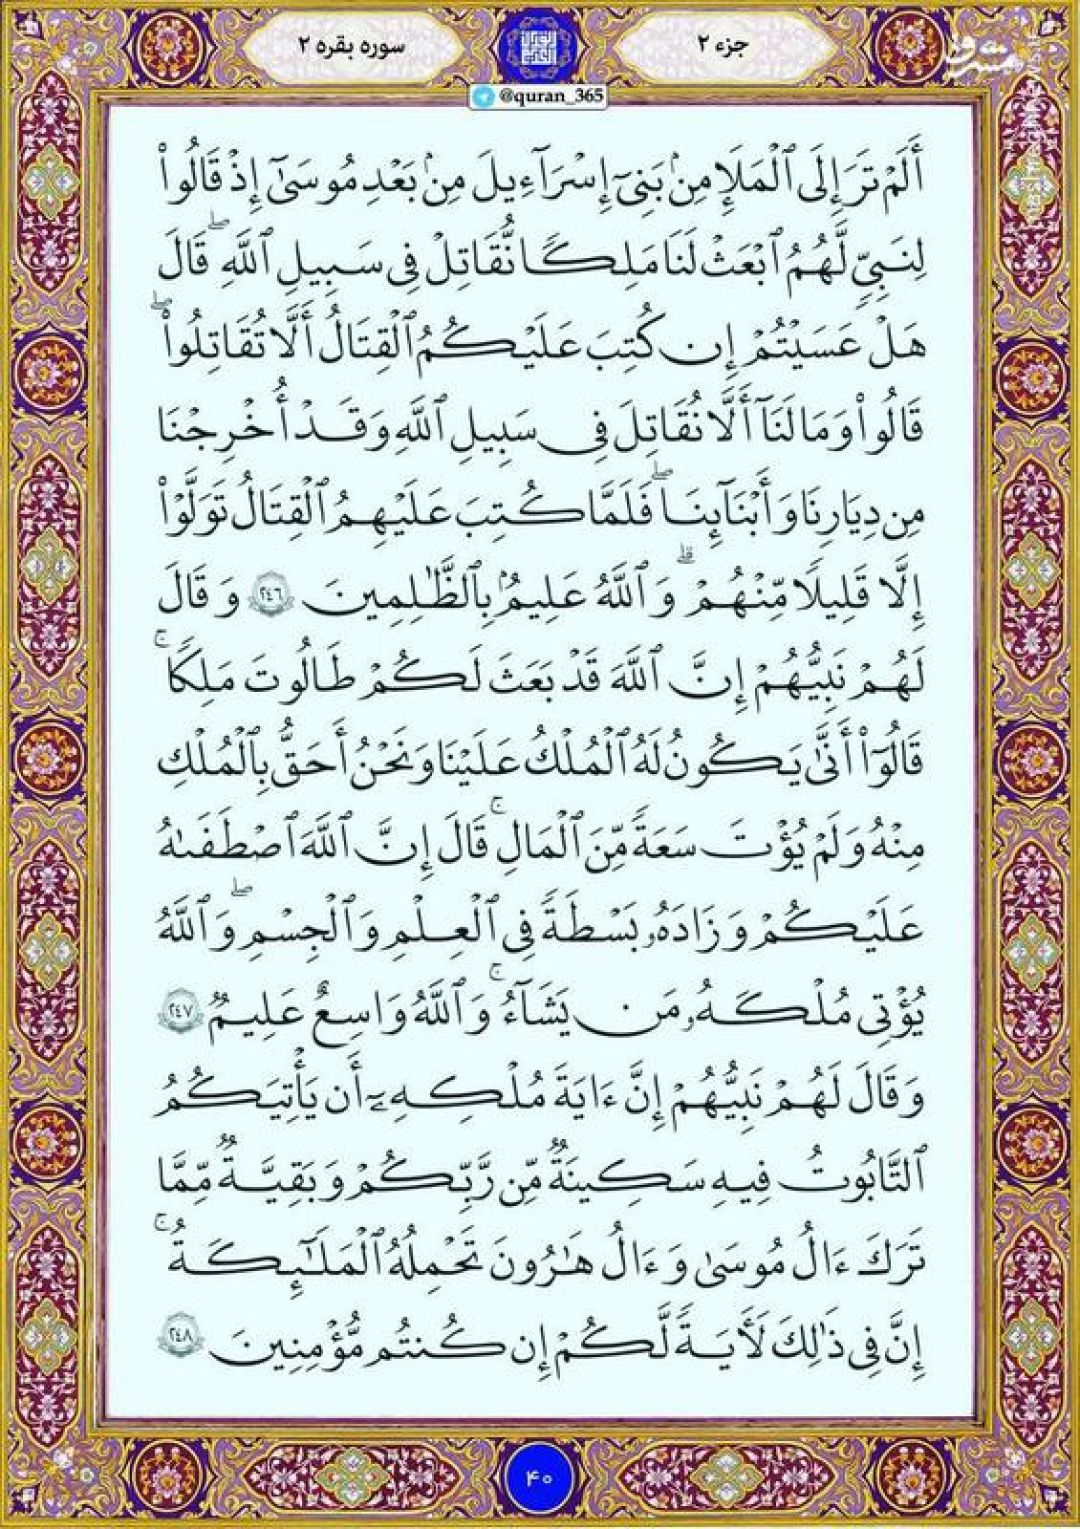 جزء ۲
سوره بقره ۲
@quran_365
أَلَمْ تَرَ إِلَى ٱلْمَلَإِ مِنۢ بَنِىٓ إِسْرَآءِيلَ مِنۢ بَعْدِ مُوسَىٰٓ إِذْ قَالُوا۟
لِنَبِىٍّ لَّهُمُ ٱبْعَثْ لَنَا مَلِكًا نُّقَاتِلْ فِى سَبِيلِ ٱللَّهِ ۖ قَالَ
هَلْ عَسَيْتُمْ إِن كُتِبَ عَلَيْكُمُ ٱلْقِتَالُ أَلَّا تُقَاتِلُوا۟ ۖ
قَالُوا۟ وَمَا لَنَآ أَلَّا نُقَاتِلَ فِى سَبِيلِ ٱللَّهِ وَقَدْ أُخْرِجْنَا
مِن دِيَارِنَا وَأَبْنَآئِنَا ۖ فَلَمَّا كُتِبَ عَلَيْهِمُ ٱلْقِتَالُ تَوَلَّوْا۟
إِلَّا قَلِيلًا مِّنْهُمْ ۗ وَٱللَّهُ عَلِيمٌۢ بِٱلظَّٰلِمِينَ ٢٤٦ وَقَالَ
لَهُمْ نَبِيُّهُمْ إِنَّ ٱللَّهَ قَدْ بَعَثَ لَكُمْ طَالُوتَ مَلِكًا ۚ
قَالُوٓا۟ أَنَّىٰ يَكُونُ لَهُ ٱلْمُلْكُ عَلَيْنَا وَنَحْنُ أَحَقُّ بِٱلْمُلْكِ
مِنْهُ وَلَمْ يُؤْتَ سَعَةً مِّنَ ٱلْمَالِ ۚ قَالَ إِنَّ ٱللَّهَ ٱصْطَفَىٰهُ
عَلَيْكُمْ وَزَادَهُۥ بَسْطَةً فِى ٱلْعِلْمِ وَٱلْجِسْمِ ۖ وَٱللَّهُ
يُؤْتِى مُلْكَهُۥ مَن يَشَآءُ ۚ وَٱللَّهُ وَٰسِعٌ عَلِيمٌ ٢٤٧
وَقَالَ لَهُمْ نَبِيُّهُمْ إِنَّ ءَايَةَ مُلْكِهِۦٓ أَن يَأْتِيَكُمُ
ٱلتَّابُوتُ فِيهِ سَكِينَةٌ مِّن رَّبِّكُمْ وَبَقِيَّةٌ مِّمَّا
تَرَكَ ءَالُ مُوسَىٰ وَءَالُ هَٰرُونَ تَحْمِلُهُ ٱلْمَلَٰٓئِكَةُ ۚ
إِنَّ فِى ذَٰلِكَ لَءَايَةً لَّكُمْ إِن كُنتُم مُّؤْمِنِينَ ٢٤٨
۴۰